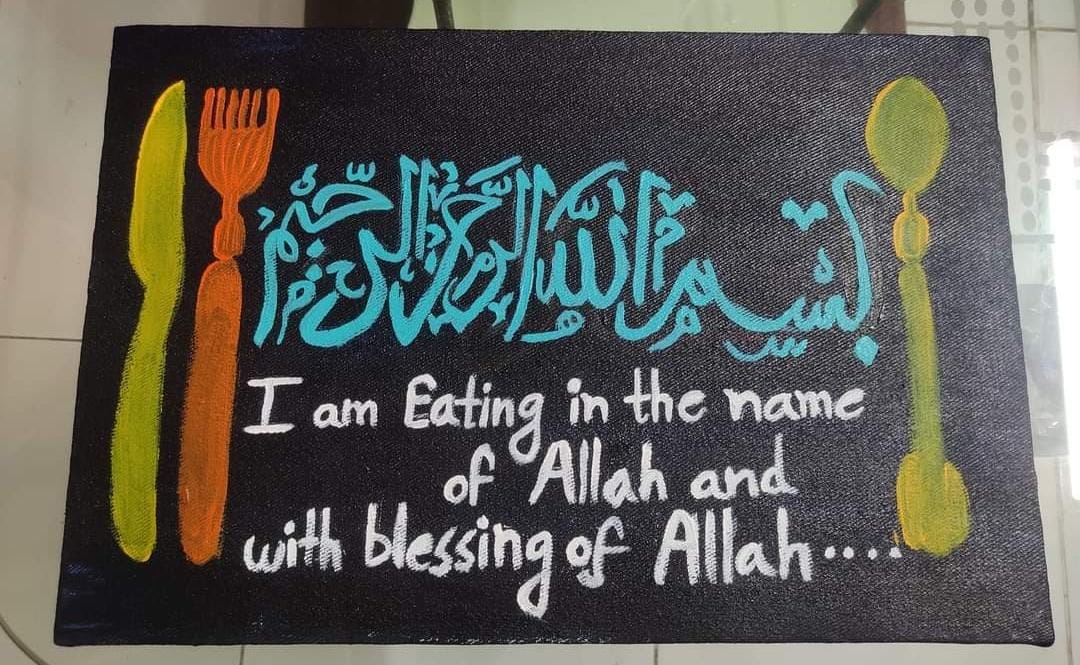 بسم الله الرحمن الرحيم
I am Eating in the name
of Allah and
with blessing of Allah....